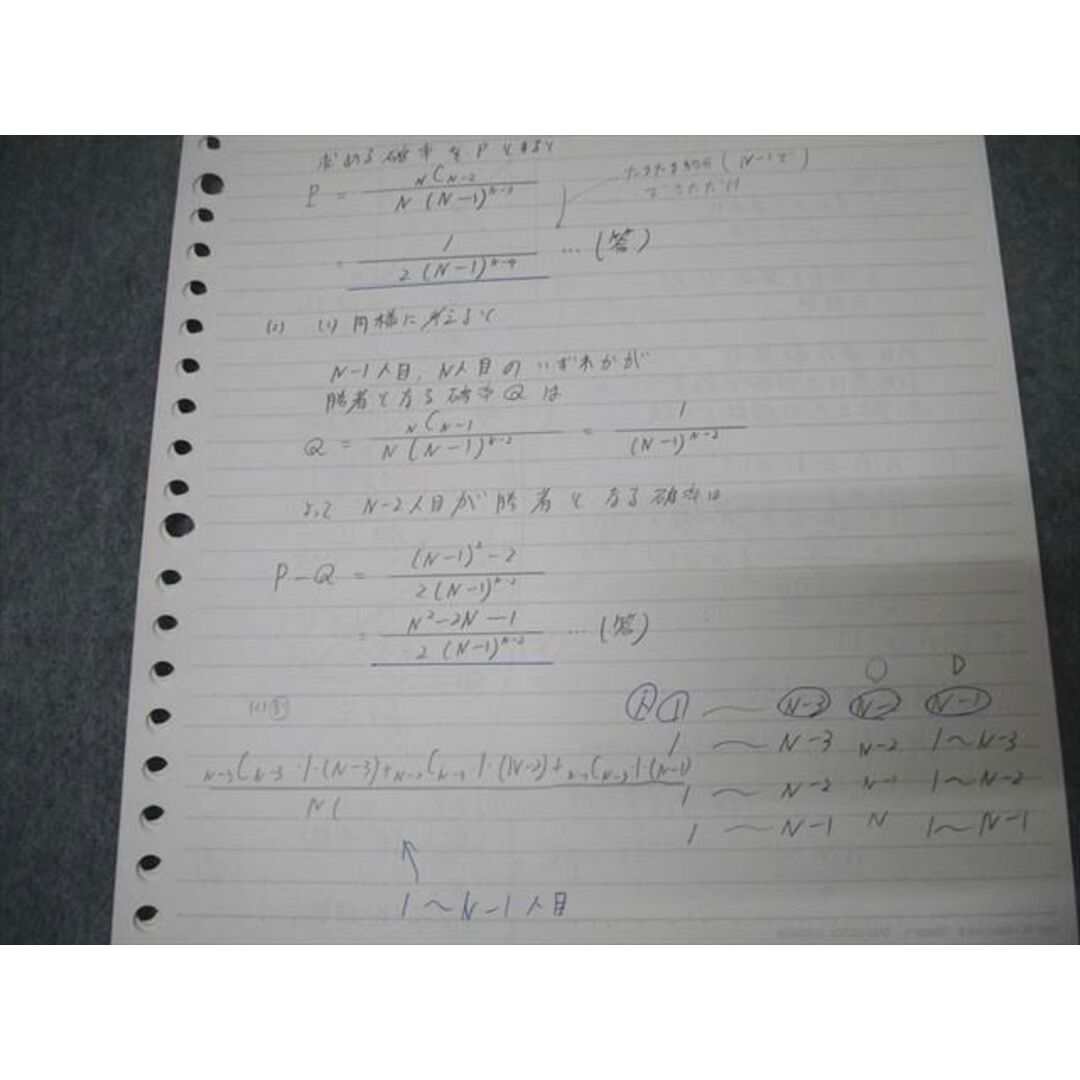 求める確率をPとすると
P = NCN-2 / N(N-1)^{N-3}
(N-1で)
= 1 / 2(N-1)^{N-4} … (答)
(2) (1)同様に考えると
N-1人目, N人目のいずれかが
勝者となる確率Qは
Q = NCN-1 / N(N-1)^{N-2} = 1 / (N-1)^{N-2}
よって N-2人目が勝者となる確率は
P-Q = (N-1)^2-2 / 2(N-1)^{N-2}
= N^2-2N-1 / 2(N-1)^{N-2} … (答)
○ D
1 ~ N-3 N-2 N-1
1 ~ N-3 N-2 1~N-3
N-3CN-3・1・(N-3)+N-2CN-3 1・(N-2)+N-1CN-3 1・(N-1) / N(
1 ~ N-2 N-1 1~N-2
1 ~ N-1 N 1~N-1
1~N-1人目